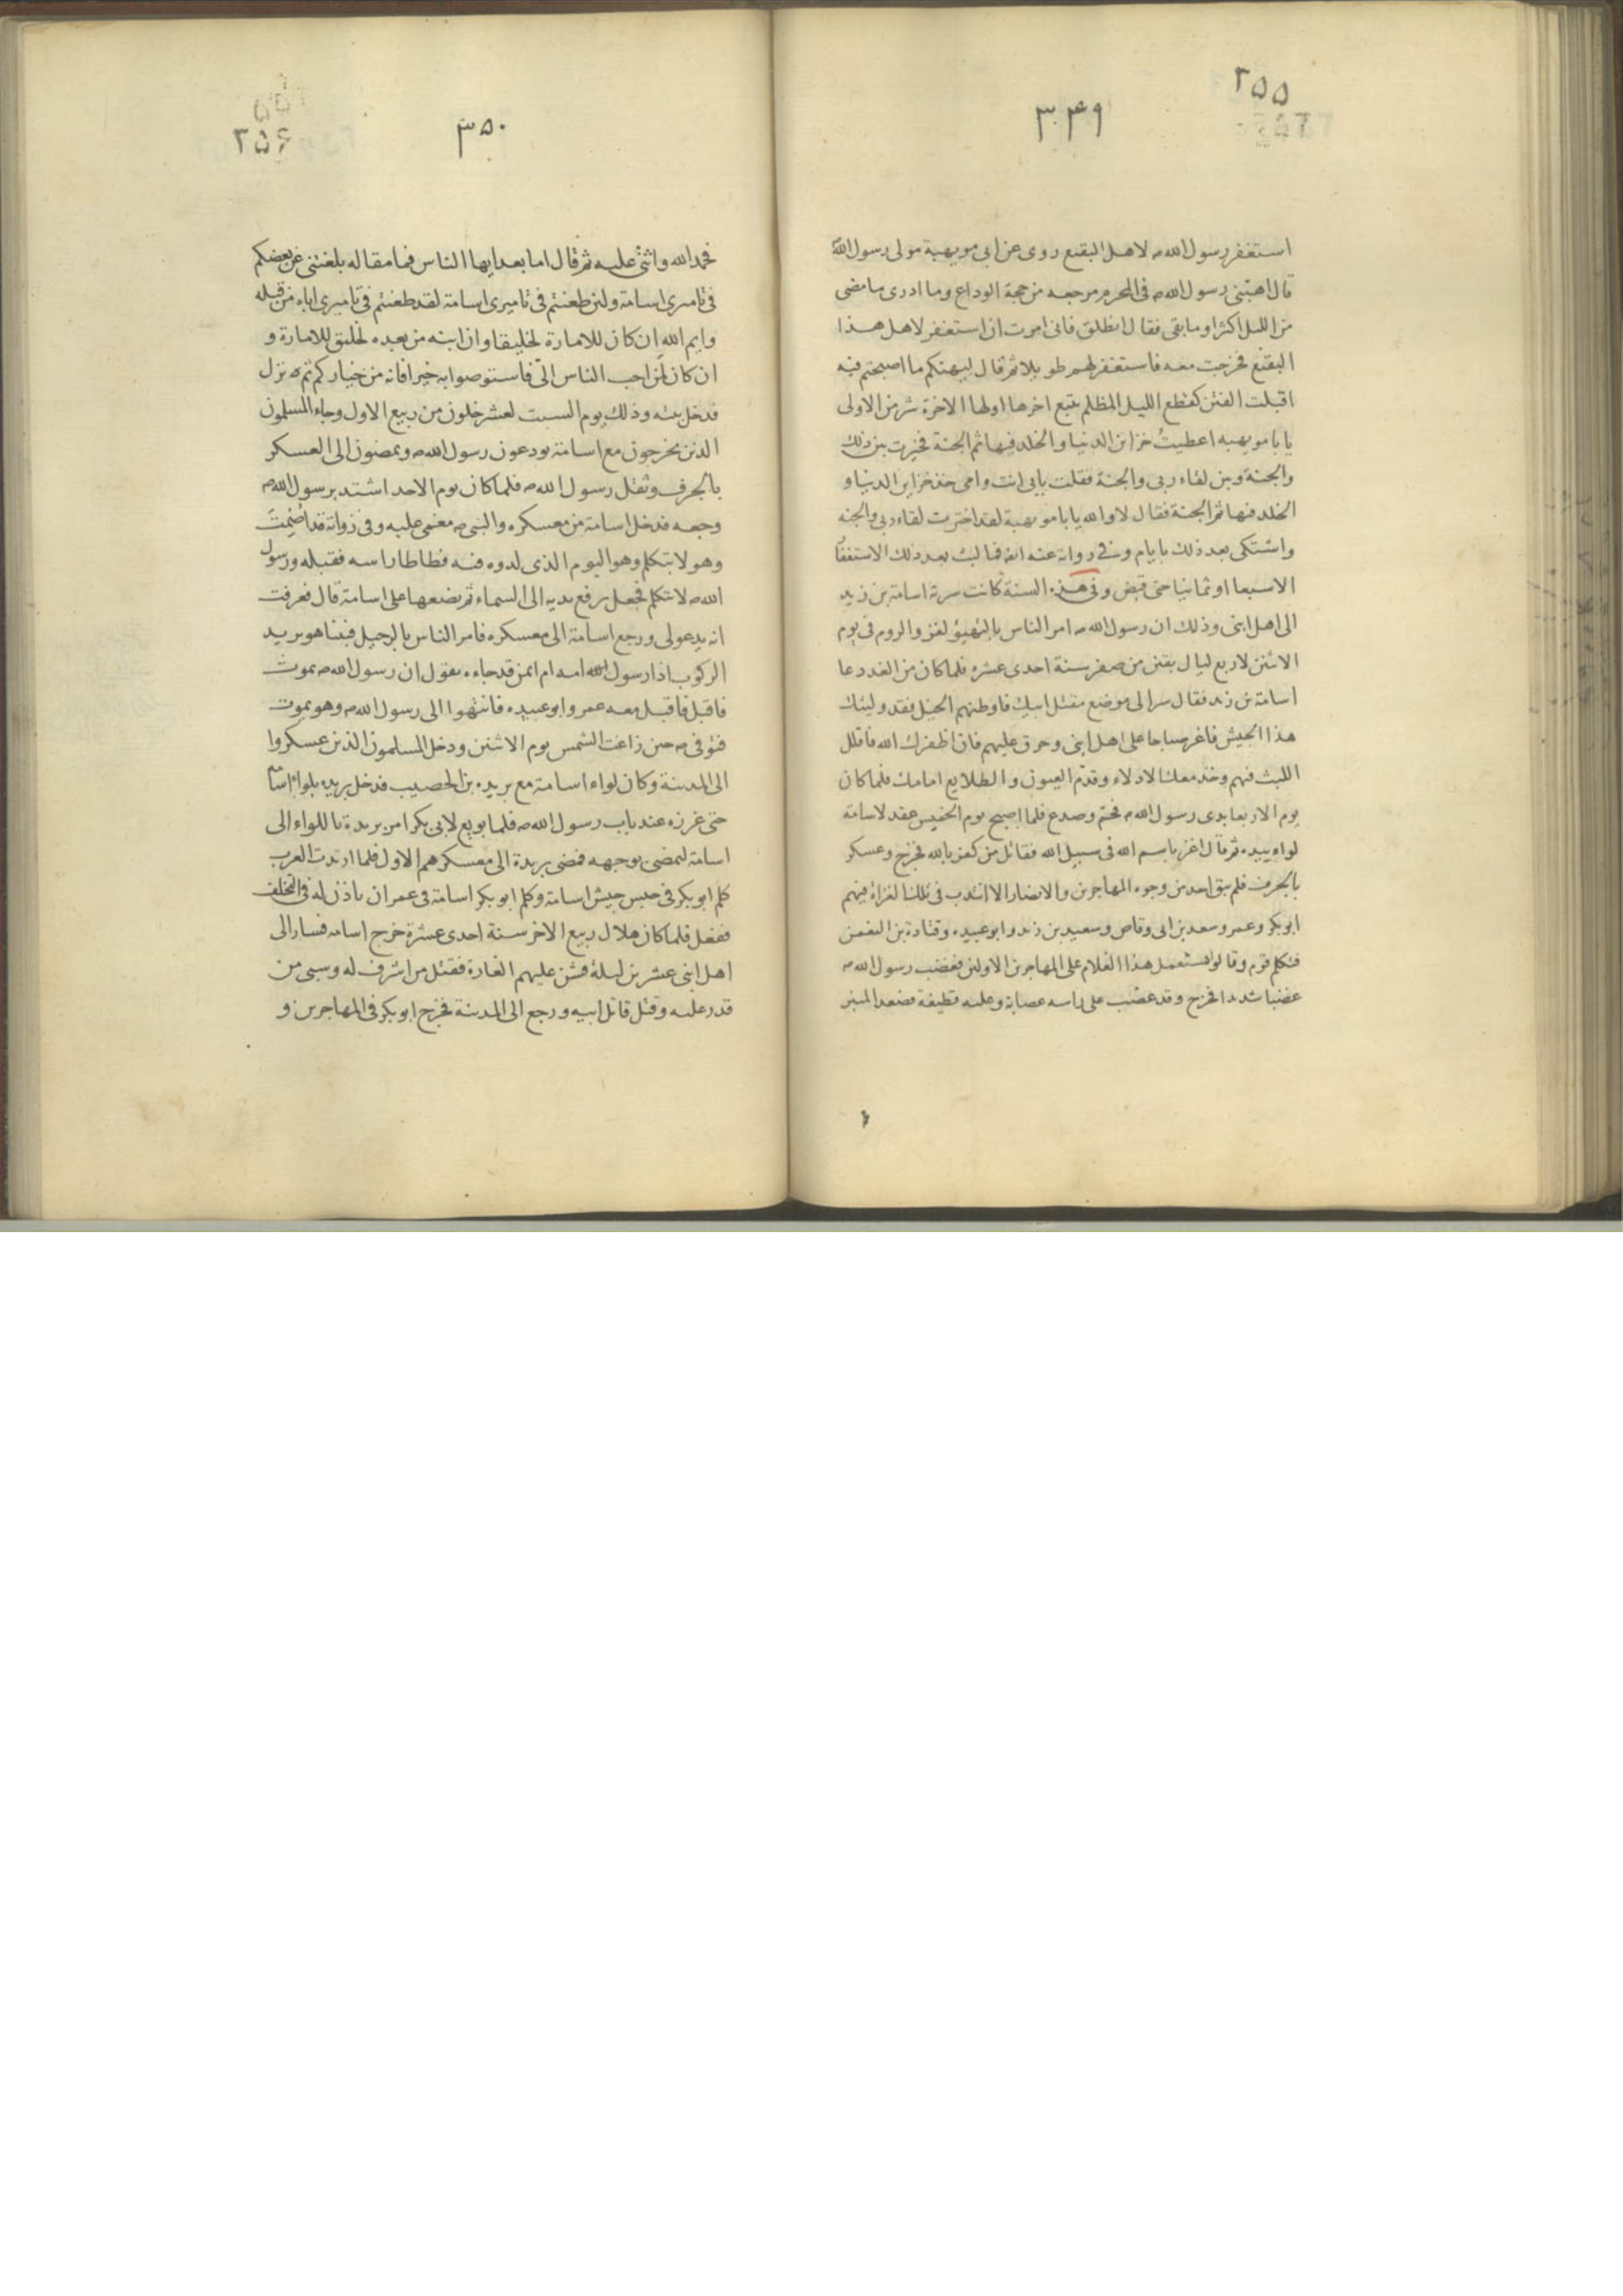 ۲۵۵
۳۴۹
استغفر رسول الله ص لاهل البقيع روى عن ابى مويهبة مولى رسول الله
قال اهبّنى رسول الله ص فى المحرم مرجعه من حجة الوداع وما ادرى ما مضى
من الليل اكثر او ما بقى فقال انطلق فانى امرت ان استغفر لاهل هذا
البقيع فخرجت معه فاستغفر لهم طويلا ثم قال ليهنكم ما اصبحتم فيه
اقبلت الفتن كقطع الليل المظلم يتبع اخرها اولها الاخرة شر من الاولى
يا با مويهبه اعطيتُ خزاين الدنيا والخلد فيها ثم الجنة فخيرت بين ذلك
والجنة وبين لقاء ربى والجنة فقلت بابى انت وامى خذ خزاين الدنيا و
الخلد فيها ثم الجنة فقال لا والله يا با مويهبة لقد اخترت لقاء ربى والجنه
واشتكى بعد ذلك بايام وفى رواية عنه انه فما لبث بعد ذلك الاستغفا
الا سبعا او ثمانيا حتى قبض وفى هذه السنة كانت سرية اسامة بن زيد
الى اهل ابنى وذلك ان رسول الله ص امر الناس بالتهيؤ لغزو الروم فى يوم
الاثنين لاربع ليال بقين من صفر سنة احدى عشره فلما كان من الغد دعا
اسامة بن زيد فقال سر الى موضع مقتل ابيك فاوطئهم الخيل فقد وليتك
هذا الجيش فاغر صباحا على اهل ابنى وحرق عليهم فان اظفرك الله فاقلل
اللبث فيهم وخذ معك الادلاء وقدّم العيون والطلايع امامك فلما كان
يوم الاربعا بدى رسول الله ص فحمّ وصدع فلما اصبح يوم الخميس عقد لاسامة
لواء بيده ثم قال اغز باسم الله فى سبيل الله فقاتل من كفر بالله فخرج وعسكر
بالجرف فلم يبق احد من وجوه المهاجرين والانصار الا انتدب فى تلك الغزاة فيهم
ابوبكر وعمر وسعد بن ابى وقاص وسعيد بن زيد وابو عبيده وقتادة بن النعمن
فتكلم قوم وقالوا يستعمل هذا الغلام على المهاجرين الاولين فغضب رسول الله ص
غضبا شديدا فخرج وقد عصّب على راسه عصابة وعليه قطيفة فصعد المنبر
۲۵۶
۳۵۰
فحمد الله واثنى عليه ثم قال اما بعد ايها الناس فما مقاله بلغتنى عن بعضكم
فى تاميرى اسامة ولئن طعنتم فى تاميرى اسامة لقد طعنتم فى تاميرى اباه من قبله
وايم الله ان كان للامارة لخليقا وان ابنه من بعده لخليق للامارة و
ان كان لَمن احب الناس الىّ فاستوصوا به خيرا فانه من خياركم ثم نزل
فدخل بيته وذلك يوم السبت لعشر خلون من ربيع الاول وجاء المسلمون
الذين يخرجون مع اسامة يودعون رسول الله ص ويمضون الى العسكر
بالجرف وثقل رسول الله ص فلما كان يوم الاحد اشتد برسول الله ص
وجعه فدخل اسامة من معسكره والنبى ص مغمى عليه وفى رواية قد اصْمِتَ
وهو لا يتكلم وهو اليوم الذى لدوه فيه فطاطا راسه فقبله ورسول
الله ص لا يتكلم فجعل يرفع يديه الى السماء ثم يضعها على اسامة قال فعرفت
انه يدعو لى ورجع اسامة الى معسكره فامر الناس بالرحيل فبينا هو يريد
الركوب اذا رسول امه ام ايمن قد جاءه يقول ان رسول الله ص يموت
فاقبل فاقبل معه عمر وابو عبيده فانتهوا الى رسول الله ص وهو يموت
فتوفى ص حين زاغت الشمس يوم الاثنين ودخل المسلمون الذين عسكروا
الى المدينة وكان لواء اسامة مع بريده بن الحصيب فدخل بريده بلواء اسامة
حتى غرزه عند باب رسول الله ص فلما بويع لابى بكر امر بريدة باللواء الى
اسامة ليمضى بوجهه فمضى بريدة الى معسكرهم الاول فلما ارتدت العرب
كلم ابو بكر فى حبس جيش اسامة وكلم ابو بكر اسامة فى عمر ان ياذن له فى التخلف
ففعل فلما كان هلال ربيع الاخر سنة احدى عشرة خرج اسامه فسار الى
اهل ابنى عشرين ليلة فشن عليهم الغارة فقتل من اشرف له وسبى من
قدر عليه وقتل قاتل ابيه ورجع الى المدينة فخرج ابو بكر فى المهاجرين و